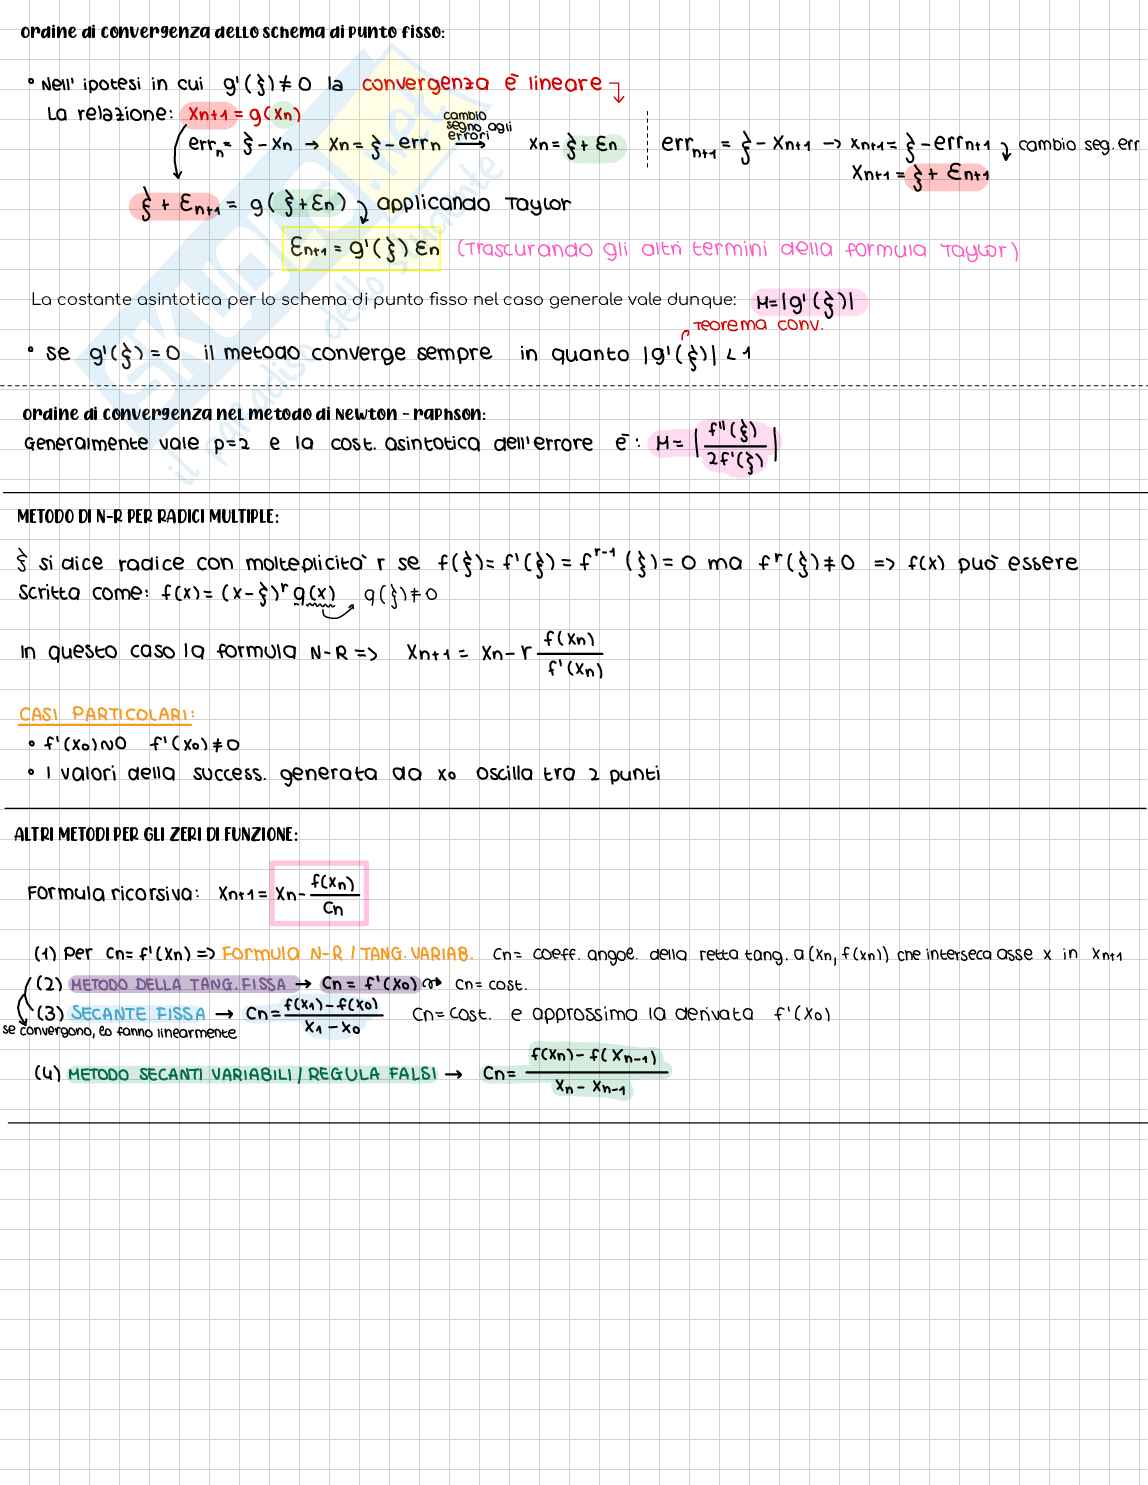 Ordine di convergenza dello schema di punto fisso:
• Nell' ipotesi in cui g'(ξ)≠0 la convergenza è lineare
La relazione: xn+1 = g(xn)
errn = ξ - xn → xn = ξ - errn → cambio segno agli errori xn = ξ + εn
errn+1 = ξ - xn+1 → xn+1 = ξ - errn+1 cambio seg. err
xn+1 = ξ + εn+1
ξ + εn+1 = g(ξ+εn) applicando Taylor
εn+1 = g'(ξ) εn (Trascurando gli altri termini della formula Taylor)
La costante asintotica per lo schema di punto fisso nel caso generale vale dunque: M=|g'(ξ)|
Teorema conv.
• Se g'(ξ)=0 il metodo converge sempre in quanto |g'(ξ)| < 1
Ordine di convergenza nel metodo di Newton - Raphson:
Generalmente vale p=2 e la cost. asintotica dell'errore è: M = |f''(ξ) / 2f'(ξ)|
METODO DI N-R PER RADICI MULTIPLE:
ξ si dice radice con molteplicità r se f(ξ)= f'(ξ) = f^r-1 (ξ) = 0 ma f^r(ξ) ≠ 0 => f(x) può essere
Scritta come: f(x) = (x-ξ)^r q(x) q(ξ)≠0
In questo caso la formula N-R => xn+1 = xn - r f(xn) / f'(xn)
CASI PARTICOLARI:
• f'(x0)~0 f'(x0)≠0
• I valori della success. generata da x0 oscilla tra 2 punti
ALTRI METODI PER GLI ZERI DI FUNZIONE:
Formula ricorsiva: xn+1 = xn - f(xn) / Cn
(1) Per Cn= f'(xn) => FORMULA N-R / TANG. VARIAB. Cn= coeff. angol. della retta tang. a (xn, f(xn)) che interseca asse x in xn+1
(2) METODO DELLA TANG. FISSA → Cn = f'(x0) Cn= cost.
(3) SECANTE FISSA → Cn = f(x1)-f(x0) / x1-x0 Cn=cost. e approssima la derivata f'(x0)
se convergono, lo fanno linearmente
(4) METODO SECANTI VARIABILI / REGULA FALSI → Cn= f(xn)- f(xn-1) / xn - xn-1
SKUOLA.net
il paradiso dello studente